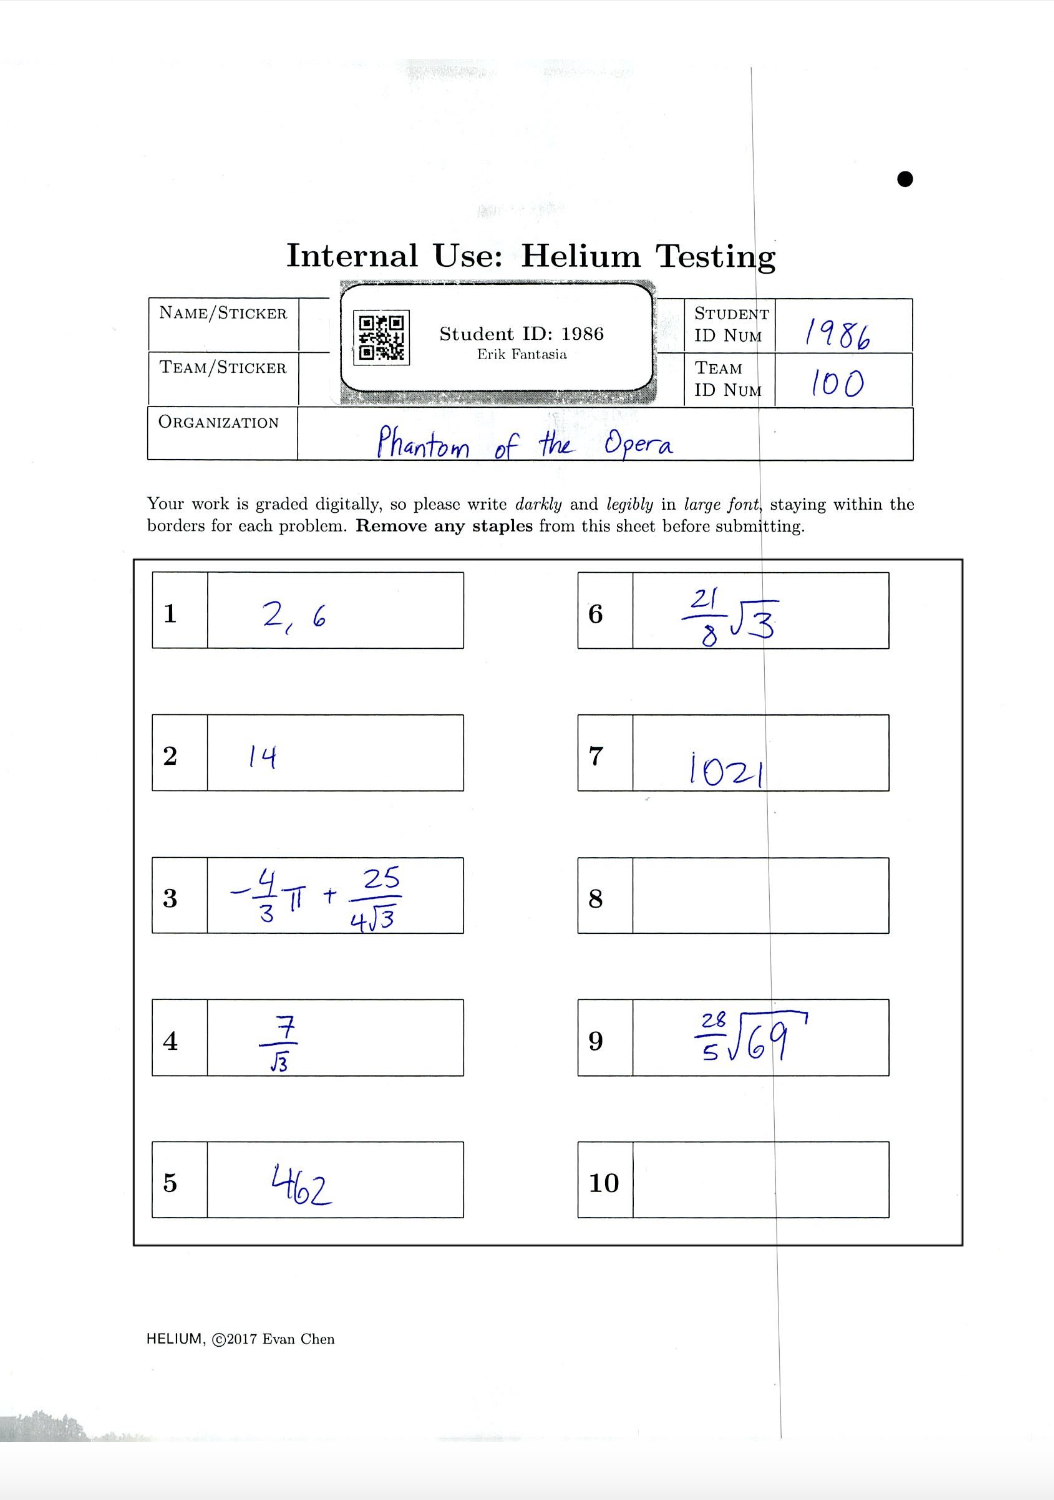 Internal Use: Helium Testing
NAME/STICKER
Student ID: 1986
Erik Fantasia
STUDENT
ID NUM
1986
TEAM/STICKER
TEAM
ID NUM
100
ORGANIZATION
Phantom of the Opera
Your work is graded digitally, so please write darkly and legibly in large font, staying within the
borders for each problem. Remove any staples from this sheet before submitting.
1 2, 6
2 14
3 -4/3 π + 25/4√3
4 7/√3
5 462
6 21/8 √3
7 1021
8
9 28/5 √69
10
HELIUM, ©2017 Evan Chen